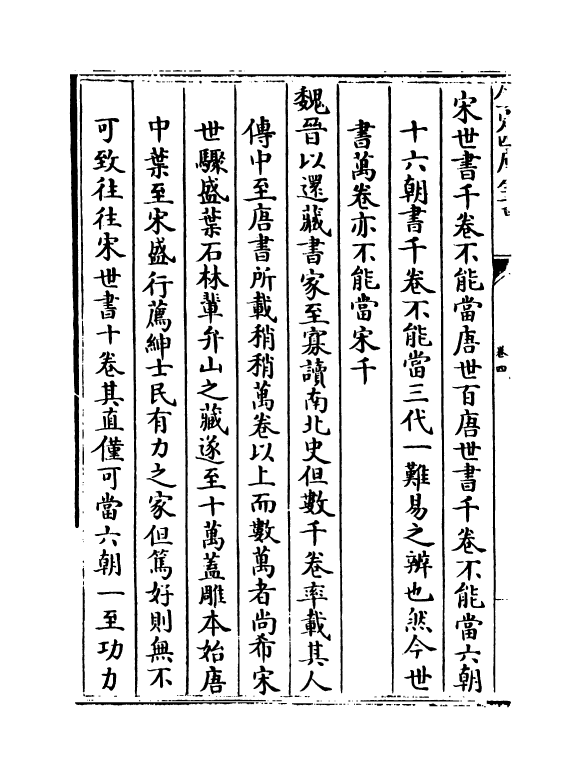 卷四
宋世書千卷不能當唐世百唐世書千卷不能當六朝
十六朝書千卷不能當三代一難易之辨也然今世
書萬卷亦不能當宋千
魏晉以還藏書家至寡讀南北史但數千卷率載其人
傳中至唐書所載稍稍萬卷以上而數萬者尚希宋
世驟盛葉石林輩弁山之藏遂至十萬蓋雕本始唐
中葉至宋盛行薦紳士民有力之家但篤好則無不
可致往往宋世書十卷其直僅可當六朝一至功力